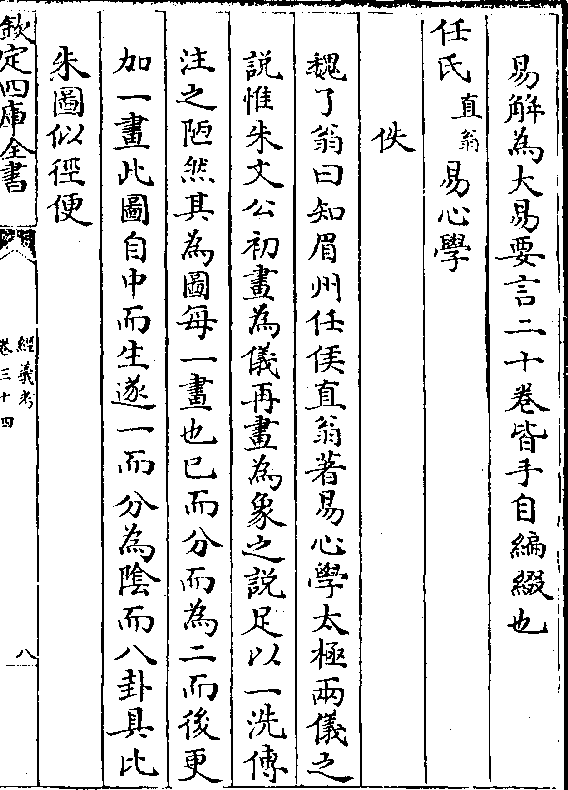 易解為大易要言二十卷皆手自編綴也
任氏直翁易心學
佚
魏了翁曰知眉州任侯直翁著易心學太極兩儀之
説惟朱文公初畫為儀再畫為象之説足以一洗傳
注之陋然其為圖每一畫也已而分而為二而後更
加一畫此圖自中而生遂一而分為隂而八卦具比
朱圖似徑便
欽定四庫全書
經義考
卷三十四
八